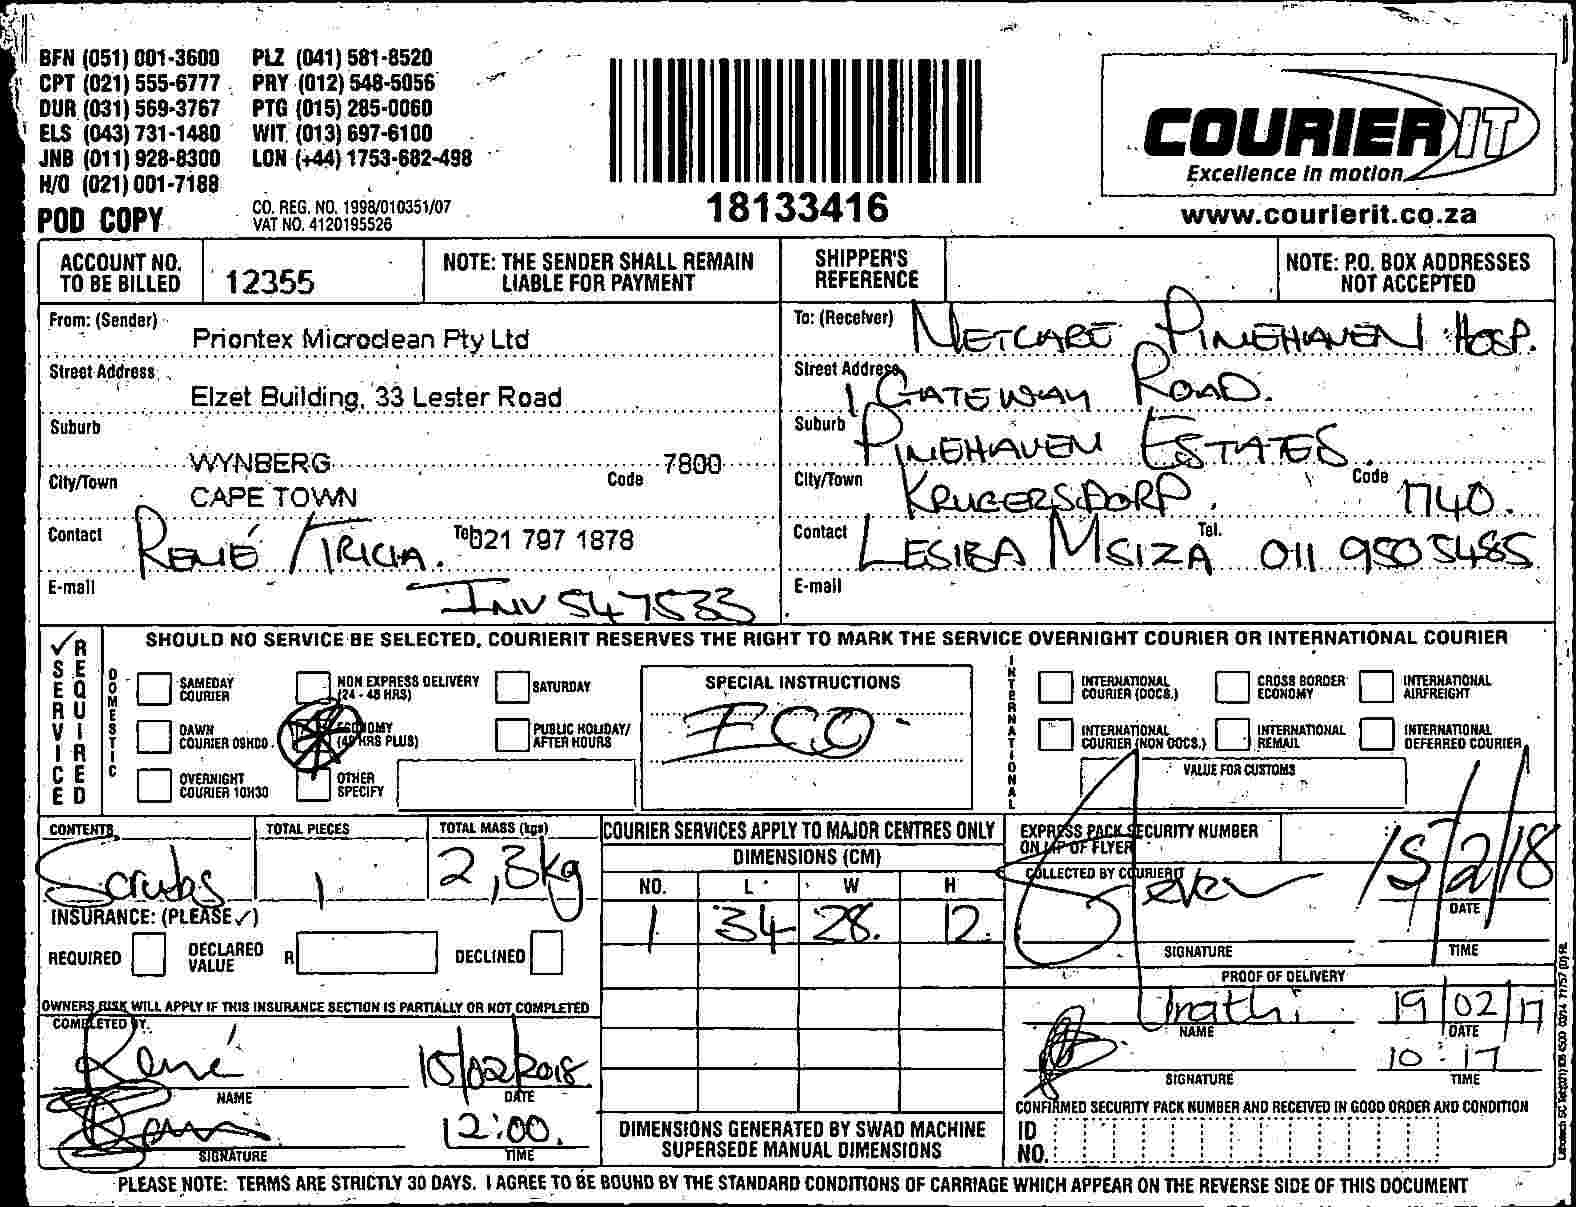 BFN (051) 001-3600 PLZ (041) 581-8520
CPT (021) 555-6777 PRY (012) 548-5056
DUR (031) 569-3767 PTG (015) 285-0060
ELS (043) 731-1480 WIT. (013) 697-6100
JNB (011) 928-8300 LON (+44) 1753-682-498
H/O (021) 001-7188
POD COPY
CO. REG. NO. 1998/010351/07
VAT NO. 4120195526
18133416
COURIER IT
Excellence in motion
www.courierit.co.za
ACCOUNT NO. TO BE BILLED 12355
NOTE: THE SENDER SHALL REMAIN LIABLE FOR PAYMENT
SHIPPER'S REFERENCE
NOTE: P.O. BOX ADDRESSES NOT ACCEPTED
From: (Sender) Priontex Microclean Pty Ltd
Street Address Elzet Building, 33 Lester Road
Suburb WYNBERG
City/Town CAPE TOWN Code 7800
Contact RENÉ / TRICIA. Tel. 021 797 1878
E-mail INV 547533
To: (Receiver) NETCARE PINEHAVEN HOSP.
Street Address 1 GATEWAY ROAD.
Suburb PINEHAVEN ESTATES.
City/Town KRUGERSDORP. Code 1740.
Contact LESIBA MSIZA Tel. 011 950 5485
E-mail
SERVICE REQUIRED
SHOULD NO SERVICE BE SELECTED, COURIERIT RESERVES THE RIGHT TO MARK THE SERVICE OVERNIGHT COURIER OR INTERNATIONAL COURIER
DOMESTIC
SAMEDAY COURIER
NON EXPRESS DELIVERY (24 - 48 HRS)
SATURDAY
DAWN COURIER 09H00
ECONOMY (48 HRS PLUS)
PUBLIC HOLIDAY/ AFTER HOURS
OVERNIGHT COURIER 10H30
OTHER SPECIFY
SPECIAL INSTRUCTIONS
ECO
INTERNATIONAL
INTERNATIONAL COURIER (DOCS.)
CROSS BORDER ECONOMY
INTERNATIONAL AIRFREIGHT
INTERNATIONAL COURIER (NON DOCS.)
INTERNATIONAL REMAIL
INTERNATIONAL DEFERRED COURIER
VALUE FOR CUSTOMS
CONTENTS Scrubs
TOTAL PIECES 1
TOTAL MASS (kgs) 2,3kg
INSURANCE: (PLEASE ✓)
REQUIRED
DECLARED VALUE R
DECLINED
OWNERS RISK WILL APPLY IF THIS INSURANCE SECTION IS PARTIALLY OR NOT COMPLETED
COMPLETED BY.
René 15/02/2018
NAME DATE
12:00.
SIGNATURE TIME
COURIER SERVICES APPLY TO MAJOR CENTRES ONLY
DIMENSIONS (CM)
NO. L W H
1 34 28. 12.
DIMENSIONS GENERATED BY SWAD MACHINE SUPERSEDE MANUAL DIMENSIONS
EXPRESS PACK SECURITY NUMBER ON LIP OF FLYER
COLLECTED BY COURIERIT
15/2/18
DATE
SIGNATURE TIME
PROOF OF DELIVERY
19/02/17
NAME DATE
10:17
SIGNATURE TIME
CONFIRMED SECURITY PACK NUMBER AND RECEIVED IN GOOD ORDER AND CONDITION
ID NO.
PLEASE NOTE: TERMS ARE STRICTLY 30 DAYS. I AGREE TO BE BOUND BY THE STANDARD CONDITIONS OF CARRIAGE WHICH APPEAR ON THE REVERSE SIDE OF THIS DOCUMENT